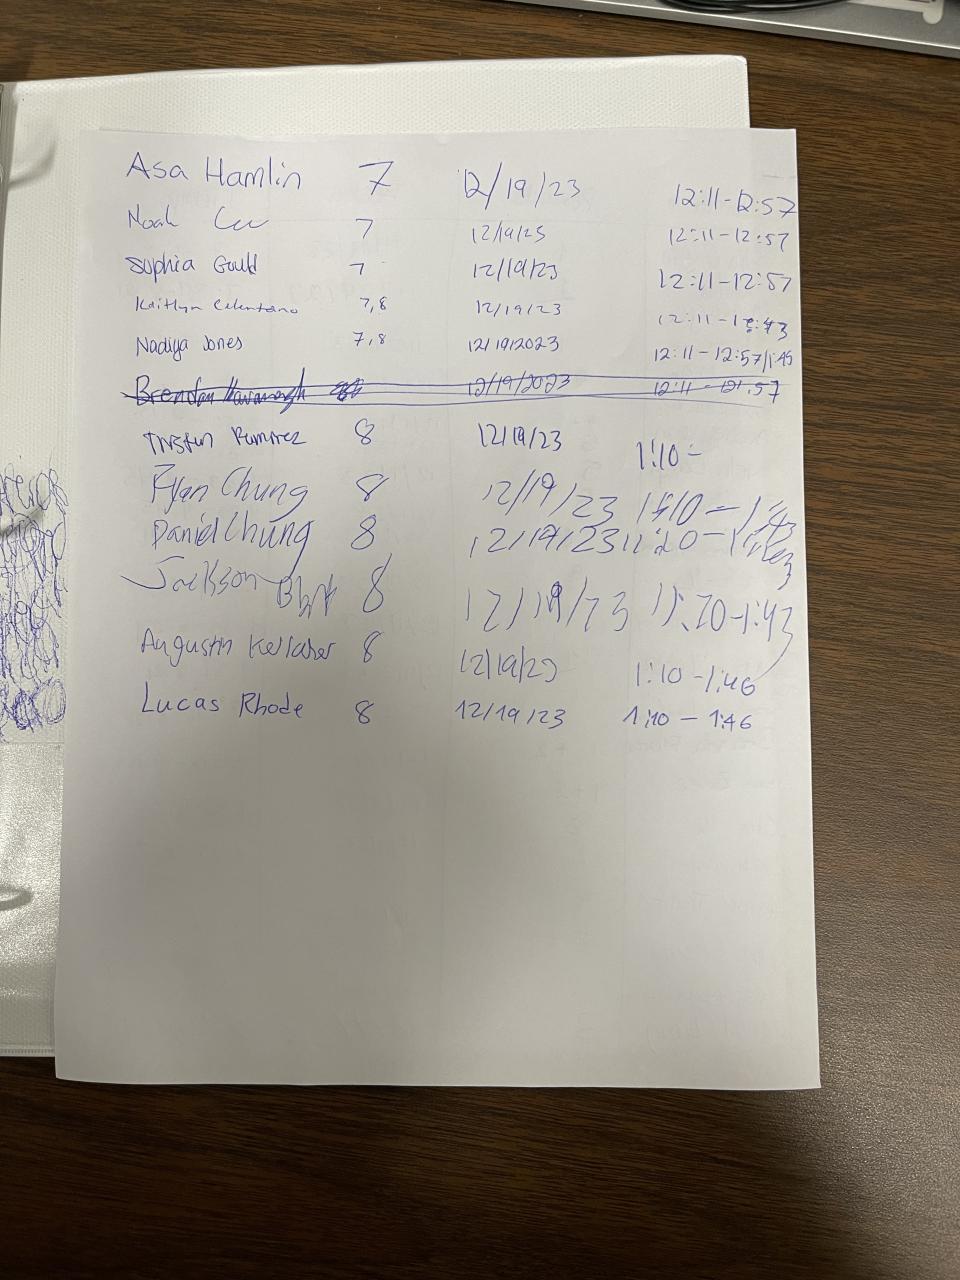 Asa Hamlin 7 12/19/23 12:11-12:57
Noah 7 12/19/23 12:11-12:57
Sophia Gould 7 12/19/23 12:11-12:57
Kaitlyn Celentano 7,8 12/19/23 12:11-
Nadiya Jones 7,8 12/19/2023 12:11-12:57/1:45
Brendan Kavanagh 12/19/2023 12:11-12:57
Tristan Ramirez 8 12/19/23 1:10-
Ryan Chung 8 12/19/23
Daniel Chung 8 12/19/23
Jackson 8 12/19/23
Augustin Kellaher 8 12/19/23 1:10-1:46
Lucas Rhode 8 12/19/23 1:10-1:46